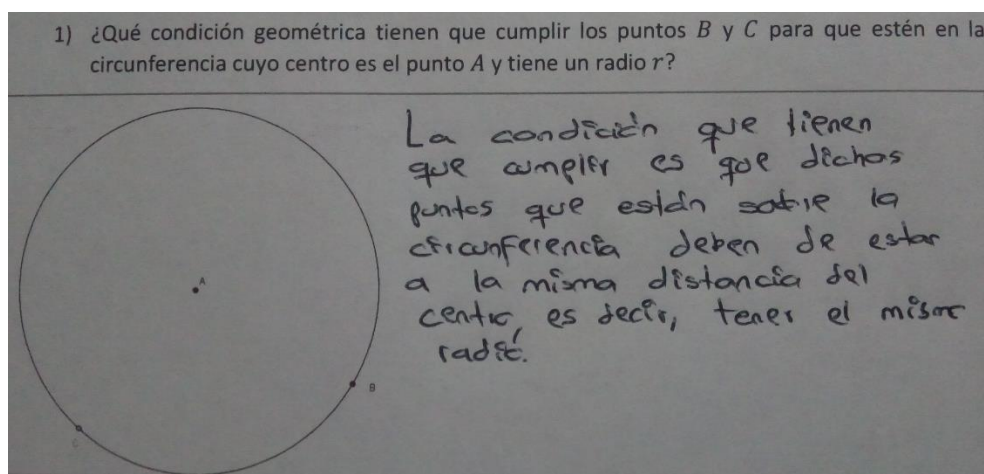 1) ¿Qué condición geométrica tienen que cumplir los puntos B y C para que estén en la
circunferencia cuyo centro es el punto A y tiene un radio r?
La condición que tienen
que cumplir es que dichos
puntos que están sobre la
circunferencia deben de estar
a la misma distancia del
centro, es decir, tener el mismo
radio.
A
B
C